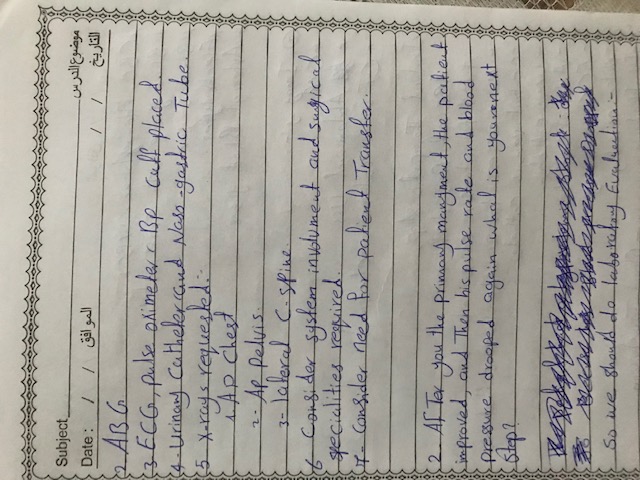 Subject موضوع الدرس
Date: / / الموافق / / التاريخ
2 ABG
3- ECG, pulse oximeter, BP cuff placed.
4- Urinary Catheter and Naso-gastric Tube.
5 X-rays requested:-
1- AP chest
2- AP pelvis.
3- lateral C-spine
6 Consider system involvment and surgical
specialities required.
7- Consider need for patient Transfer.
2- AFTer you the primary manigment, the patient
improved, and Then his pulse rate and blood
pressure drooped again what is your next
step?
So we should do laboratory Evaluation:-